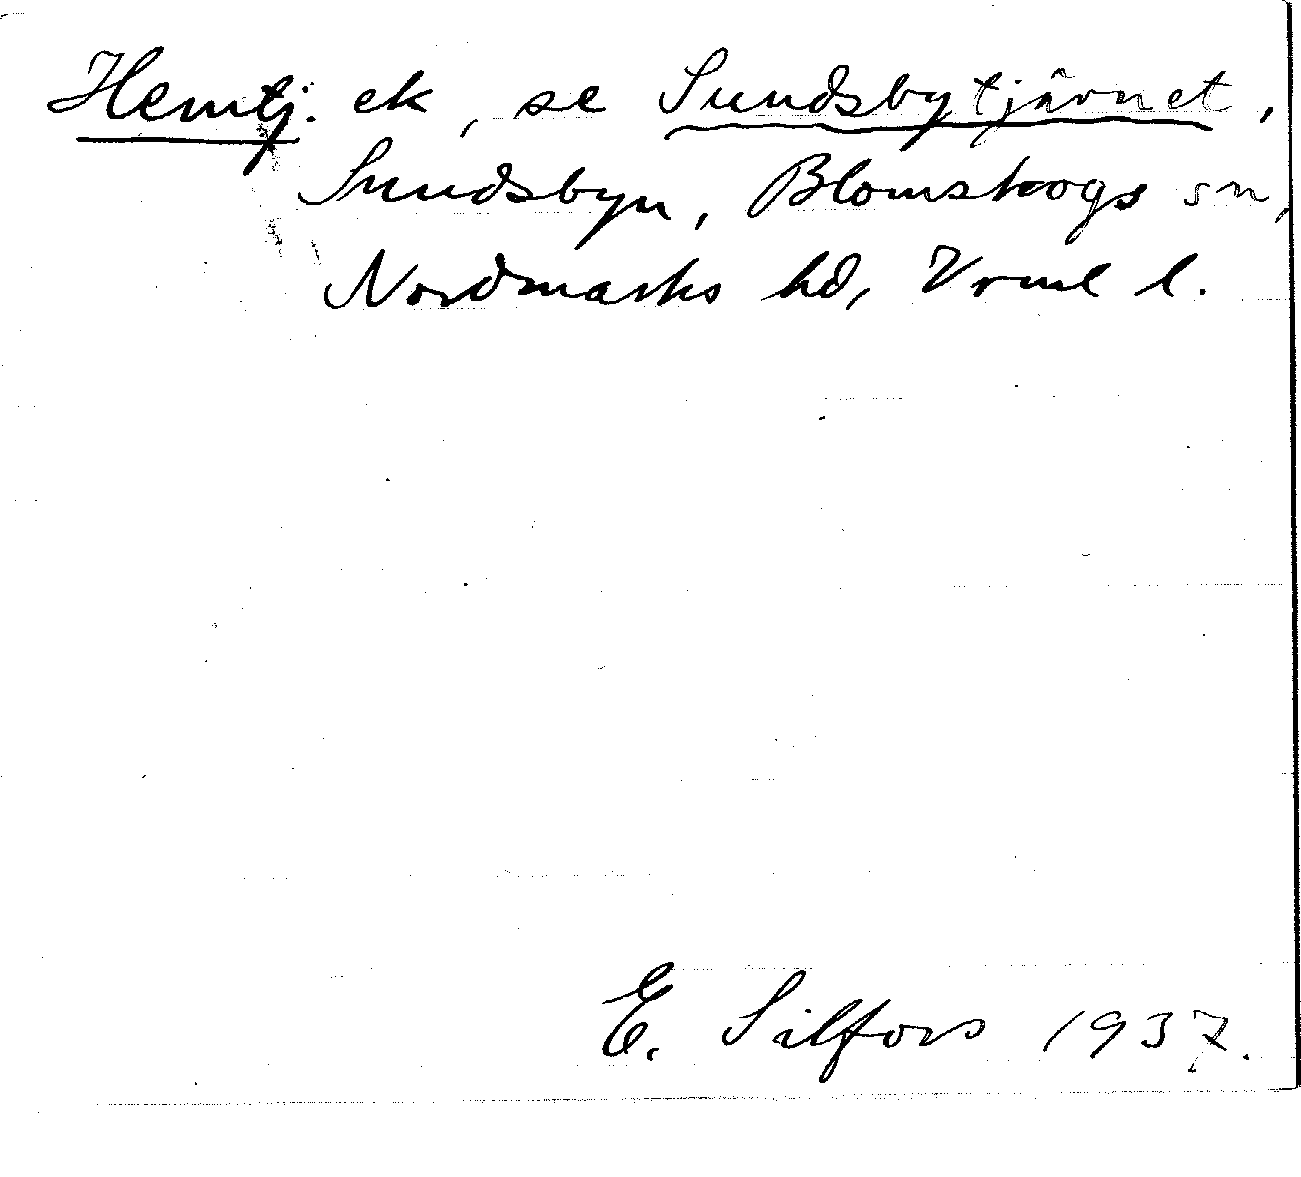 Hemtj. ek, se Sundsbytjärnet,
Sundsbyn, Blomskogs sn,
Nordmarks hd, Vrml l.
E. Silfors 1937.